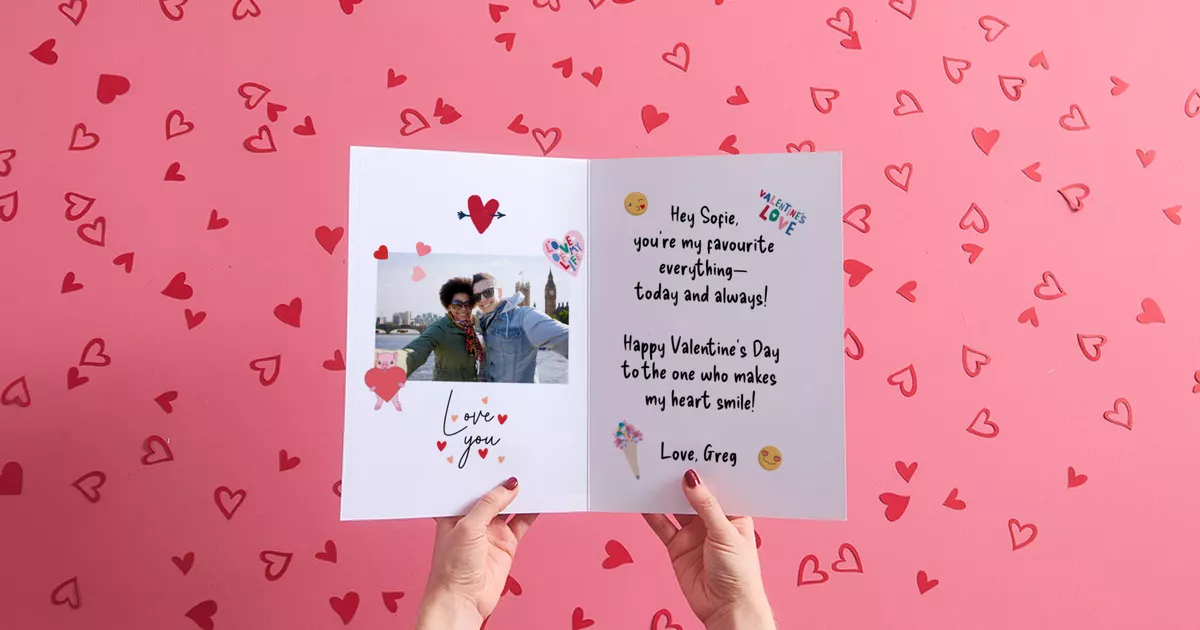 LOVE
LOVE MY
LOVE LIFE
Love
you
VALENTINE'S
LOVE
Hey Sofie,
you're my favourite
everything—
today and always!
Happy Valentine's Day
to the one who makes
my heart smile!
Love, Greg